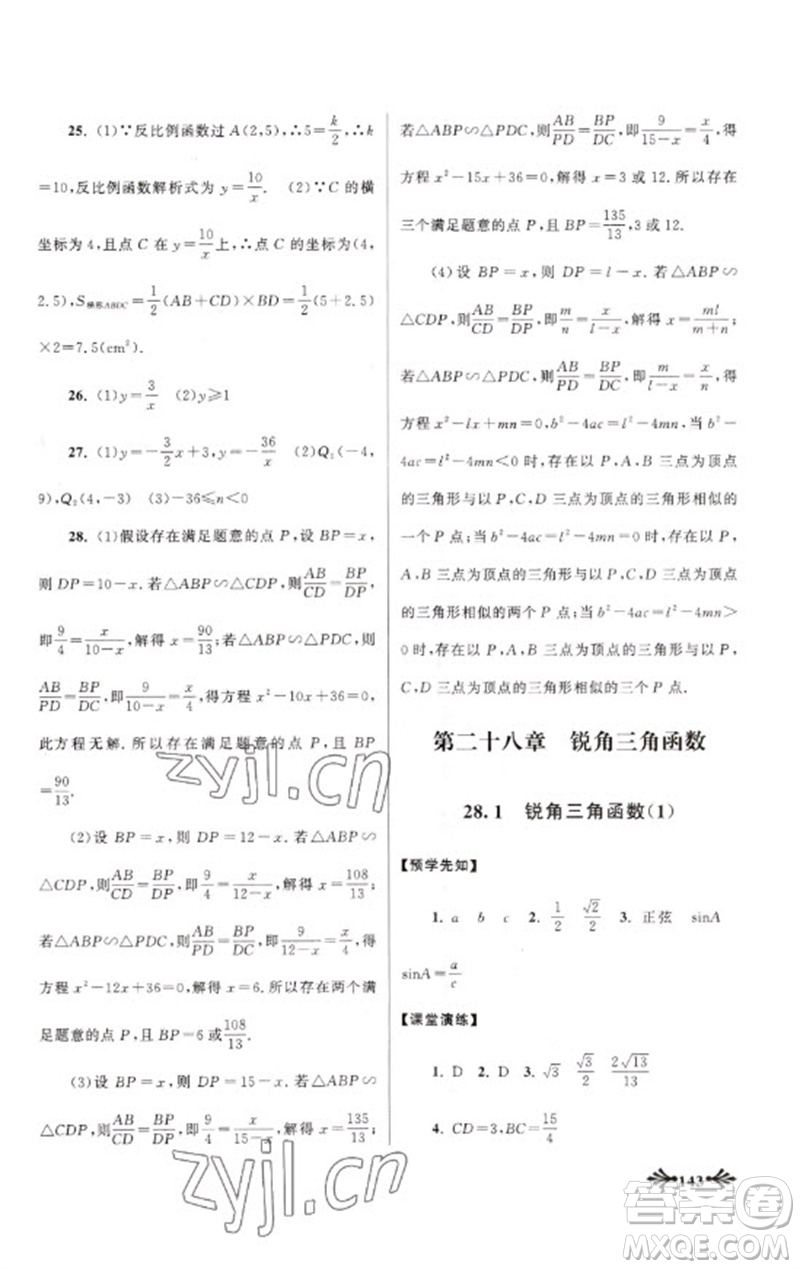 25. (1)∵反比例函数过 A(2,5),∴5=k/2,∴k
=10,反比例函数解析式为 y=10/x. (2)∵C 的横
坐标为4,且点 C 在 y=10/x 上,∴点 C 的坐标为(4,
2.5),S梯形ABDC=1/2(AB+CD)×BD=1/2(5+2.5)
×2=7.5(cm²).
26. (1)y=3/x (2)y≥1
27. (1)y=-3/2x+3,y=-36/x (2)Q₁(-4,
9),Q₂(4,-3) (3)-36≤n<0
28. (1)假设存在满足题意的点 P,设 BP=x,
则 DP=10-x.若△ABP∽△CDP,则AB/CD=BP/DP,
即9/4=x/(10-x),解得 x=90/13;若△ABP∽△PDC,则
AB/PD=BP/DC,即9/(10-x)=x/4,得方程 x²-10x+36=0,
此方程无解.所以存在满足题意的点 P,且 BP
=90/13.
(2)设 BP=x,则 DP=12-x.若△ABP∽
△CDP,则AB/CD=BP/DP,即9/4=x/(12-x),解得 x=108/13;
若△ABP∽△PDC,则AB/PD=BP/DC,即9/(12-x)=x/4,得
方程 x²-12x+36=0,解得 x=6.所以存在两个满
足题意的点 P,且 BP=6 或108/13.
(3)设 BP=x,则 DP=15-x.若△ABP∽
△CDP,则AB/CD=BP/DP,即9/4=x/(15-x),解得 x=135/13;
若△ABP∽△PDC,则AB/PD=BP/DC,即9/(15-x)=x/4,得
方程 x²-15x+36=0,解得 x=3 或 12.所以存在
三个满足题意的点 P,且 BP=135/13,3 或 12.
(4)设 BP=x,则 DP=l-x.若△ABP∽
△CDP,则AB/CD=BP/DP,即m/n=x/(l-x),解得 x=ml/(m+n);
若△ABP∽△PDC,则AB/PD=BP/DC,即m/(l-x)=x/n,得
方程 x²-lx+mn=0,b²-4ac=l²-4mn,当 b²-
4ac=l²-4mn<0 时,存在以 P、A、B 三点为顶点
的三角形与以 P、C、D 三点为顶点的三角形相似的
一个 P 点;当 b²-4ac=l²-4mn=0 时,存在以 P、
A、B 三点为顶点的三角形与以 P、C、D 三点为顶点
的三角形相似的两个 P 点;当 b²-4ac=l²-4mn>
0 时,存在以 P、A、B 三点为顶点的三角形与以 P、
C、D 三点为顶点的三角形相似的三个 P 点.
第二十八章 锐角三角函数
28.1 锐角三角函数(1)
【预学先知】
1. a b c 2. 1/2 √2/2 3. 正弦 sinA
sinA=a/c
【课堂演练】
1. D 2. D 3. √3 √3/2 2√13/13
4. CD=3,BC=15/4
143
zyjl.cn
zyjl.cn
答案圈
MXQE.COM